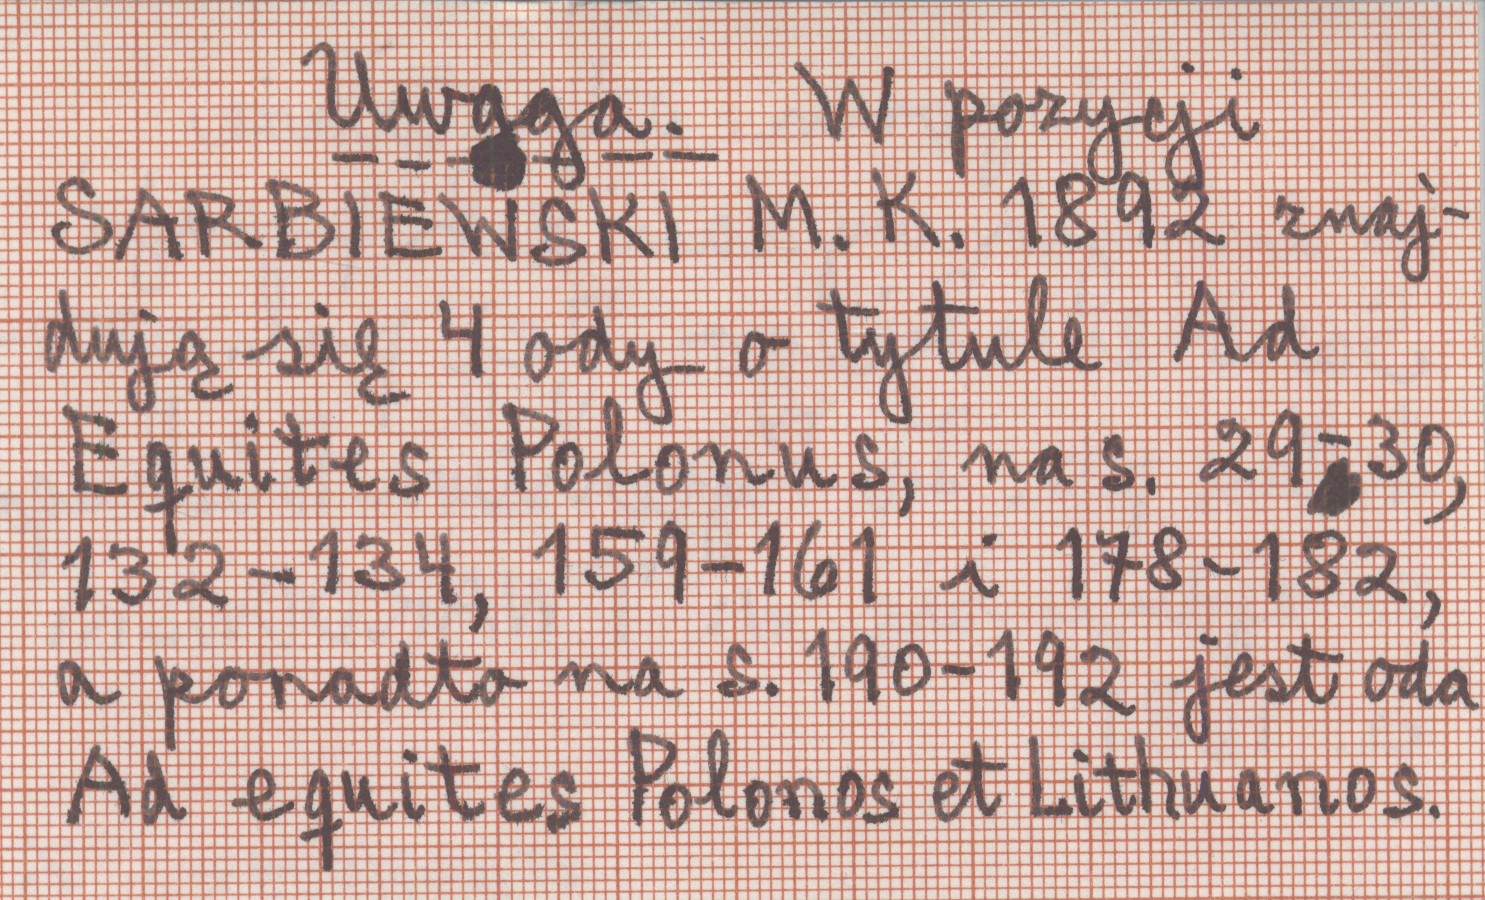 Uwaga. W pozycji
SARBIEWSKI M. K. 1892 znaj-
dują się 4 ody o tytule Ad
Equites Polonus, na s. 29-30,
132-134, 159-161 i 178-182,
a ponadto na s. 190-192 jest oda
Ad equites Polonos et Lithuanos.